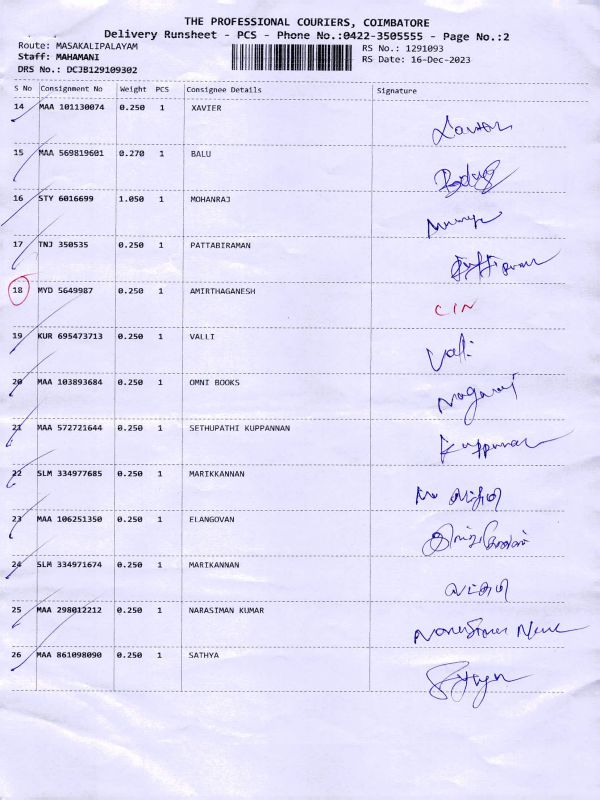 THE PROFESSIONAL COURIERS, COIMBATORE
Delivery Runsheet - PCS - Phone No.:0422-3505555 - Page No.:2
Route: MASAKALIPALAYAM RS No.: 1291093
Staff: MAHAMANI RS Date: 16-Dec-2023
DRS No.: DCJB129109302
S No Consignment No Weight PCS Consignee Details Signature
14 MAA 101130074 0.250 1 XAVIER
15 MAA 569819601 0.270 1 BALU
16 STY 6016699 1.050 1 MOHANRAJ
17 TNJ 350535 0.250 1 PATTABIRAMAN
18 MYD 5649987 0.250 1 AMIRTHAGANESH CIN
19 KUR 695473713 0.250 1 VALLI Valli
20 MAA 103893684 0.250 1 OMNI BOOKS Nagaraj
21 MAA 572721644 0.250 1 SETHUPATHI KUPPANNAN Kuppanan
22 SLM 334977685 0.250 1 MARIKKANNAN
23 MAA 106251350 0.250 1 ELANGOVAN
24 SLM 334971674 0.250 1 MARIKANNAN
25 MAA 298012212 0.250 1 NARASIMAN KUMAR
26 MAA 861098090 0.250 1 SATHYA